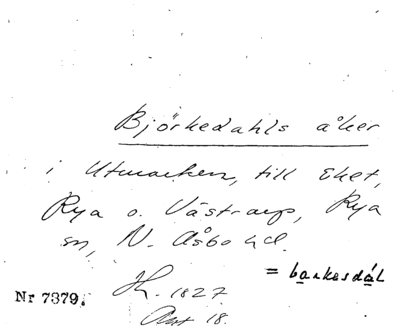 Björkedahls åker
i Utmarken, till Eket,
Rya o. Västraup, Rya
sn, N. Åsbo hd.
= barkesdál
Nr 7379.
H. 1827
Ant 18.